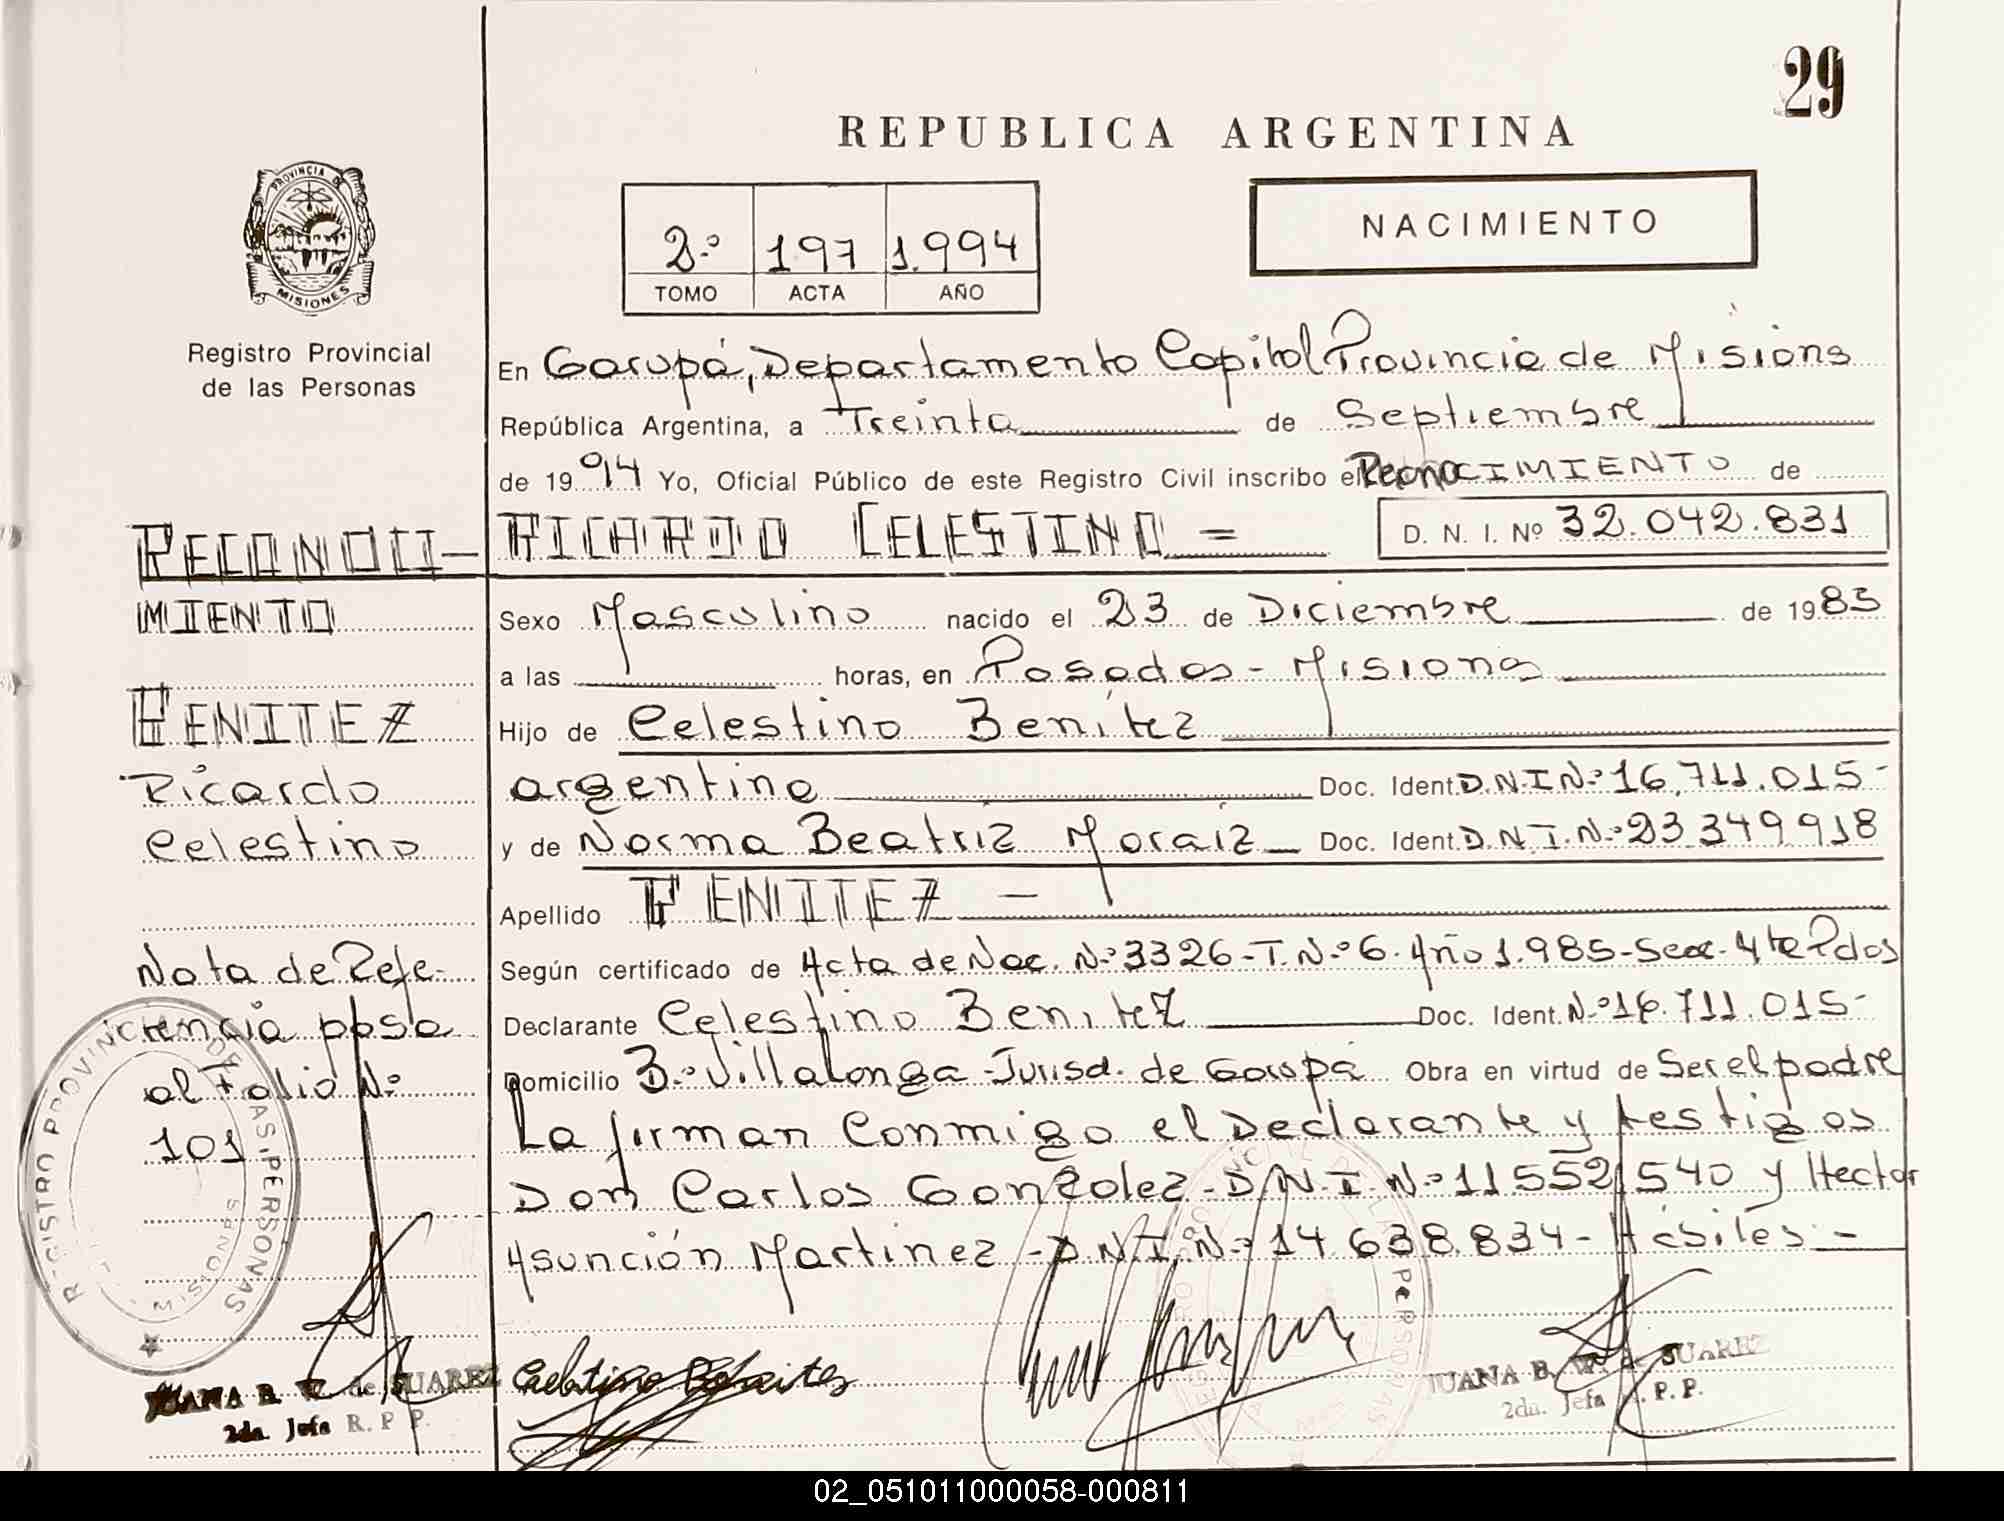 29
REPUBLICA ARGENTINA
PROVINCIA DE
MISIONES
Registro Provincial
de las Personas
2.º 197 1.994
TOMO ACTA AÑO
NACIMIENTO
En Garupá, Departamento Capital Provincia de Misiones
República Argentina, a Treinta de Septiembre
de 1994 Yo, Oficial Público de este Registro Civil inscribo el ReconoCIMIENTO de
RICARDO CELESTINO = D. N. I. Nº 32.042.831
Sexo Masculino nacido el 23 de Diciembre de 1985
a las horas, en Posadas - Misiones
Hijo de Celestino Benitez
argentino Doc. Ident. D.N.I Nº 16.711.015-
y de Norma Beatriz Moraiz Doc. Ident. D.N.I.Nº 23.349.918
Apellido BENITEZ -
Según certificado de Acta de Nac. Nº 3326-T.Nº 6. Año 1.985-Secc. 4te Pdas
Declarante Celestino Benitez Doc. Ident. Nº 16.711.015-
Domicilio Bº Villalonga-Jurisd. de Garupá Obra en virtud de Ser el padre
La firman Conmigo el Declarante y testigos
Don Carlos Gonzalez-D.N.I.Nº 11.552.540 y Hector
Asunción Martinez-D.N.I.Nº 14.638.834-Hábiles-
RECONOCI-
MIENTO
BENITEZ
Ricardo
Celestino
Nota de Refe-
rencia pasa
al Folio Nº
101
REGISTRO PROVINCIAL DE LAS PERSONAS
MISIONES
JUANA B. W. de SUAREZ
2da. Jefa R. P. P.
Celestino Benites
JUANA B. W. de SUAREZ
2da. Jefa R. P. P.
02_051011000058-000811